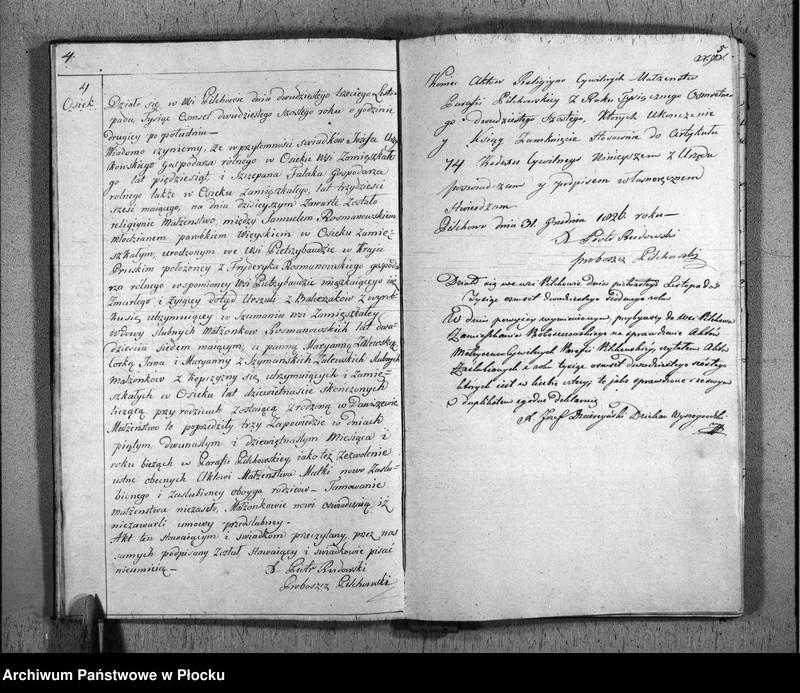 4.
4
Osiek.
Działo się w wsi Pilchowie dnia dwudziestego trzeciego Listo-
pada Tysiąc Osmset dwudziestego Szostego roku o godzinie
drugiey po południu —
Wiadomo czyniemy, że w przytomności swiadków Jozefa
kowskiego gospodarza rolnego w Osieku wsi Zamięszkałe-
go lat pięcdziesiąt, i Szczepana Falaka Gospodarza
rolnego także w Osieku zamięszkałego, lat trzydziesci
szesc maiącego, na dniu dzisieyszym zawarte zostało
religiyne Małżenstwo, między Samuelem Rosmanowskim
Młodzianem parobkiem Wieyskim w Osieku zamię-
szkałym, urodzonym we wsi Pietrzybaudzie w Kraju
Pruskim położoney z Fryderyka Rosmanowskiego gospoda-
rza rolnego w spomioney wsi Pietrzybaudzie mięszkaiącego iuż
Zmarłego i żyiącey dotąd Urszuli z Balczaków z wyrob-
ku się utrzymuiącey w Szumaniu wsi Zamięszkałey
Wdowy slubnych Małzonkow Rosmanowskich lat dwa-
dziescia siedem maiącym, a panną Maryanną Zalewską
Corką Jana i Maryanny z Szymańskich Zalewskich slubnych
Małżonkow z Kopczyzny się utrzymuiących i zamię-
szkałych w Osieku lat dziewiętnascie skonczonych
liczącą przy rodzicach zostaiącą zrodzoną w
Małżeństwo to poprzedziły trzy Zapowiedzie w dniach
piętym, dwunastym i dziewiętnastym Miesiąca i
roku bieżąch w Parafii Pilchowskiey, iako też zezwolenie
ustne obecnych Aktowi Małżenstwa Matki nowo Zaslu-
bionego i zaslubioney oboyga rodziców — Tamowanie
małżenstwa niezaszło, Małżonkowie nowi oswiadczaią iż
niezawarli umowy przedslubney —
Akt ten stawaiącym i swiadkom przeczytany, przez nas
samych podpisany został, stawaiący i swiadkowie pisać
nieumieią —
X Piotr Rudowski
Proboszcz Pilchowski
5
Koniec Aktow Religiyno Cywilnych Małzenstw
Parafii Pilchowskiey z Roku Tysiącznego Osmsetne-
go Dwudziestego Szostego, Których Ukonczenie
y Księgi Zamknięcie Stosownie do Artykułu
74 Kodexu Cywilnego Ninieyszem z Urzędu
poswiadczam y podpisem własnoręcznem
stwierdzam
Pilchowo dnia 31 Grudnia 1826 roku —
X Piotr Rudowski
proboszcz Pilchowski
Działo się we wsi Pilchowie dnia Listopada
Tysiąc osmset Dwudziestego siodmego roku
W Dniu powyżey wymienionym, przybywszy do wsi Pilchowa
na sprawdzenie Aktow
Cywilnych Parafii Pilchowskiey, czytałem Aktow
Zaslubionych z roku Tysiąc osmset dwudziestego szostego
ktorych iest w liczbie cztery, te iako sprawdzone i
z duplikatem zgodne deklaruię
X Jozef Dziekan Wyszogrodzki
Archiwum Państwowe w Płocku